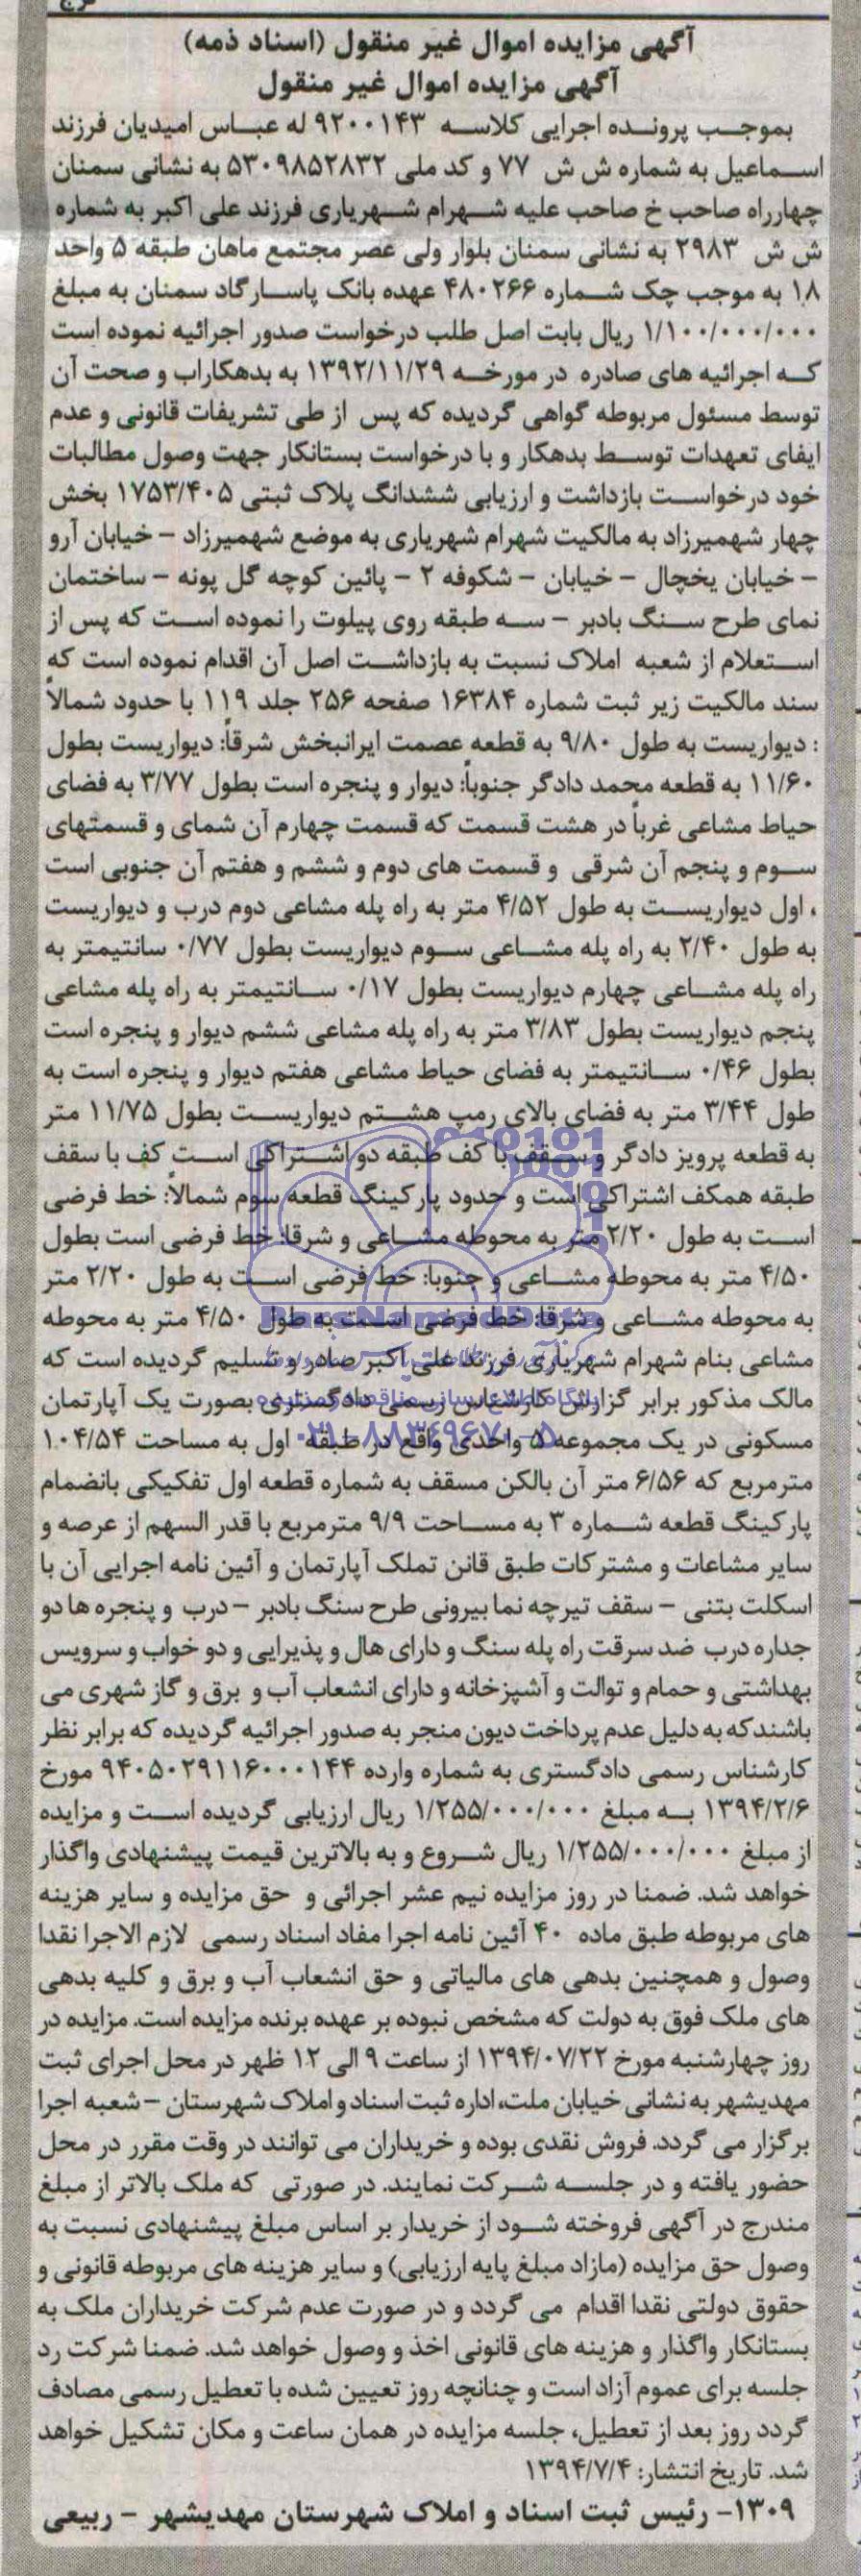 آگهی مزایده اموال غیر منقول (اسناد ذمه)
آگهی مزایده اموال غیر منقول
بموجب پرونده اجرایی کلاسه ۹۲۰۰۱۴۳ له عباس امیدیان فرزند
اسماعیل به شماره ش ش ۷۷ و کد ملی ۵۳۰۹۸۵۲۸۳۲ به نشانی سمنان
چهارراه صاحب خ صاحب علیه شهرام شهریاری فرزند علی اکبر به شماره
ش ش ۲۹۸۳ به نشانی سمنان بلوار ولی عصر مجتمع ماهان طبقه ۵ واحد
۱۸ به موجب چک شماره ۴۸۰۲۶۶ عهده بانک پاسارگاد سمنان به مبلغ
۱/۱۰۰/۰۰۰/۰۰۰ ریال بابت اصل طلب درخواست صدور اجرائیه نموده است
که اجرائیه های صادره در مورخه ۱۳۹۲/۱۱/۲۹ به بدهکاراب و صحت آن
توسط مسئول مربوطه گواهی گردیده که پس از طی تشریفات قانونی و عدم
ایفای تعهدات توسط بدهکار و با درخواست بستانکار جهت وصول مطالبات
خود درخواست بازداشت و ارزیابی ششدانگ پلاک ثبتی ۱۷۵۳/۴۰۵ بخش
چهار شهمیرزاد به مالکیت شهرام شهریاری به موضع شهمیرزاد - خیابان آرو
- خیابان یخچال - خیابان - شکوفه ۲ - پائین کوچه گل پونه - ساختمان
نمای طرح سنگ بادبر - سه طبقه روی پیلوت را نموده است که پس از
استعلام از شعبه املاک نسبت به بازداشت اصل آن اقدام نموده است که
سند مالکیت زیر ثبت شماره ۱۶۳۸۴ صفحه ۲۵۶ جلد ۱۱۹ با حدود شمالاً
: دیواریست به طول ۹/۸۰ به قطعه عصمت ایرانبخش شرقاً: دیواریست بطول
۱۱/۶۰ به قطعه محمد دادگر جنوباً: دیوار و پنجره است بطول ۳/۷۷ به فضای
حیاط مشاعی غرباً در هشت قسمت که قسمت چهارم آن شمای و قسمتهای
سوم و پنجم آن شرقی و قسمت های دوم و ششم و هفتم آن جنوبی است
، اول دیواریست به طول ۴/۵۲ متر به راه پله مشاعی دوم درب و دیواریست
به طول ۲/۴۰ به راه پله مشاعی سوم دیواریست بطول ۰/۷۷ سانتیمتر به
راه پله مشاعی چهارم دیواریست بطول ۰/۱۷ سانتیمتر به راه پله مشاعی
پنجم دیواریست بطول ۳/۸۳ متر به راه پله مشاعی ششم دیوار و پنجره است
بطول ۰/۴۶ سانتیمتر به فضای حیاط مشاعی هفتم دیوار و پنجره است به
طول ۳/۴۴ متر به فضای بالای رمپ هشتم دیواریست بطول ۱۱/۷۵ متر
به قطعه پرویز دادگر و سقف با کف طبقه دو اشتراکی است کف با سقف
طبقه همکف اشتراکی است و حدود پارکینگ قطعه سوم شمالاً: خط فرضی
است به طول ۲/۲۰ متر به محوطه مشاعی و شرقا: خط فرضی است بطول
۴/۵۰ متر به محوطه مشاعی و جنوبا: خط فرضی است به طول ۲/۲۰ متر
به محوطه مشاعی و شرقا: خط فرضی است به طول ۴/۵۰ متر به محوطه
مشاعی بنام شهرام شهریاری فرزند علی اکبر صادر و تسلیم گردیده است که
مالک مذکور برابر گزارش کارشناس رسمی دادگستری بصورت یک آپارتمان
مسکونی در یک مجموعه ۵ واحدی واقع در طبقه اول به مساحت ۱۰۴/۵۴
مترمربع که ۶/۵۶ متر آن بالکن مسقف به شماره قطعه اول تفکیکی بانضمام
پارکینگ قطعه شماره ۳ به مساحت ۹/۹ مترمربع با قدر السهم از عرصه و
سایر مشاعات و مشترکات طبق قانن تملک آپارتمان و آئین نامه اجرایی آن با
اسکلت بتنی - سقف تیرچه نما بیرونی طرح سنگ بادبر - درب و پنجره ها دو
جداره درب ضد سرقت راه پله سنگ و دارای هال و پذیرایی و دو خواب و سرویس
بهداشتی و حمام و توالت و آشپزخانه و دارای انشعاب آب و برق و گاز شهری می
باشند که به دلیل عدم پرداخت دیون منجر به صدور اجرائیه گردیده که برابر نظر
کارشناس رسمی دادگستری به شماره وارده ۹۴۰۵۰۲۹۱۱۶۰۰۰۱۴۴ مورخ
۱۳۹۴/۲/۶ به مبلغ ۱/۲۵۵/۰۰۰/۰۰۰ ریال ارزیابی گردیده است و مزایده
از مبلغ ۱/۲۵۵/۰۰۰/۰۰۰ ریال شروع و به بالاترین قیمت پیشنهادی واگذار
خواهد شد. ضمنا در روز مزایده نیم عشر اجرائی و حق مزایده و سایر هزینه
های مربوطه طبق ماده ۴۰ آئین نامه اجرا مفاد اسناد رسمی لازم الاجرا نقدا
وصول و همچنین بدهی های مالیاتی و حق انشعاب آب و برق و کلیه بدهی
های ملک فوق به دولت که مشخص نبوده بر عهده برنده مزایده است. مزایده در
روز چهارشنبه مورخ ۱۳۹۴/۰۷/۲۲ از ساعت ۹ الی ۱۲ ظهر در محل اجرای ثبت
مهدیشهر به نشانی خیابان ملت، اداره ثبت اسناد و املاک شهرستان - شعبه اجرا
برگزار می گردد. فروش نقدی بوده و خریداران می توانند در وقت مقرر در محل
حضور یافته و در جلسه شرکت نمایند. در صورتی که ملک بالاتر از مبلغ
مندرج در آگهی فروخته شود از خریدار بر اساس مبلغ پیشنهادی نسبت به
وصول حق مزایده (مازاد مبلغ پایه ارزیابی) و سایر هزینه های مربوطه قانونی و
حقوق دولتی نقدا اقدام می گردد و در صورت عدم شرکت خریداران ملک به
بستانکار واگذار و هزینه های قانونی اخذ و وصول خواهد شد. ضمنا شرکت رد
جلسه برای عموم آزاد است و چنانچه روز تعیین شده با تعطیل رسمی مصادف
گردد روز بعد از تعطیل، جلسه مزایده در همان ساعت و مکان تشکیل خواهد
شد. تاریخ انتشار: ۱۳۹۴/۷/۴
۱۳۰۹- رئیس ثبت اسناد و املاک شهرستان مهدیشهر - ربیعی
ParsNamadData
پایگاه اطلاع رسانی مناقصه و مزایده
۰۲۱-۸۸۳۴۹۶۷۰-۵